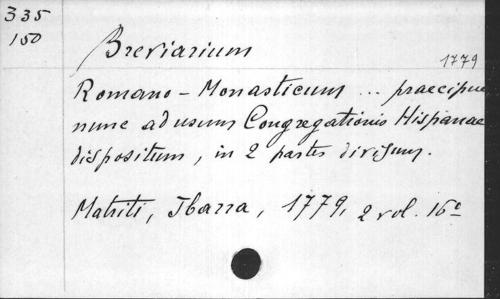 335
150
Breviarium
1779
Romano-Monasticum ... praecipue
nunc ad usum Congregationis Hispanae
dispositum, in 2 partes divisum.
Matriti, Ibarra, 1779, 2 vol. 16º